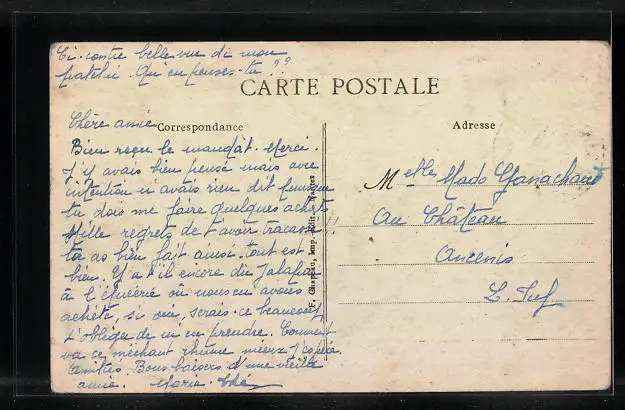 Ci-contre belle vue di mon
patelin. Qu en penses-tu ??
CARTE POSTALE
Correspondance
Adresse
Chère amie
Bien reçu le mandat. Merci.
J'y avais bien pensé mais avec
intention n avais rien dit puisque
tu dois me faire quelques achats
Mille regrets de t avoir tracassé !!
tu as bien fait ainsi tout est
bien. Y a t'il encore du
à l'épicerie où nous en avons
acheté, si oui, serais-ce beaucoup
t'obliger de m'en prendre. Comment
va ce méchant rhume mieux j'espère
Amitiés. Bons baisers d'une vieille
amie. Marie
F. Chapeau, Imp.-Edit., Nantes
Melles Mado
Au Château
Ancenis
L. Inf